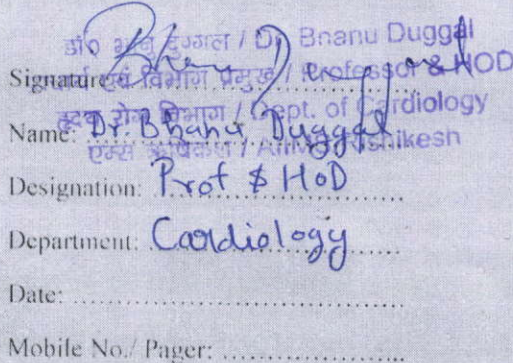 डॉ० भानु दुग्गल / Dr Bhanu Duggal
Signature: Bhanu Duggal
एवं विभाग प्रमुख / Professor & HOD
हृदय रोग विभाग / Dept. of Cardiology
Name: Dr. Bhanu Duggal
एम्स ऋषिकेश / AIIMS Rishikesh
Designation: Prof & HoD
Department: Cardiology
Date: ....................
Mobile No./ Pager: ....................